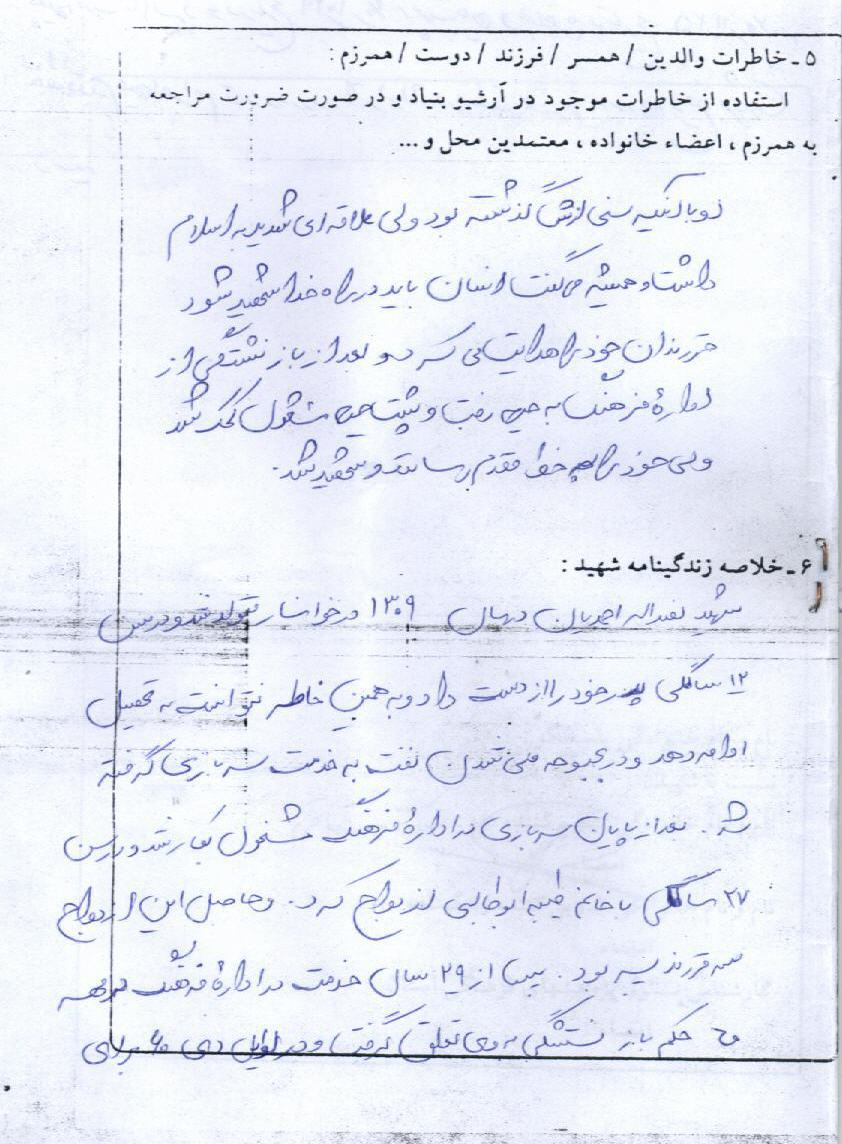 ۵ ـ خاطرات والدین / همسر / فرزند / دوست / همرزم :
استفاده از خاطرات موجود در آرشیو بنیاد و در صورت ضرورت مراجعه
به همرزم ، اعضاء خانواده ، معتمدین محل و ...
او با آنکه سنی ازش گذشته بود ولی علاقه ای شدید به اسلام
داشت و همیشه می گفت انسان باید در راه خدا شهید شود
فرزندان خود را هدایت می کرد و بعد از باز نشستگی از
اداره فرهنگ به جبهه رفت و پشت جبهه مشغول کمک شد
ولی خود را به خط مقدم رساند و شهید شد.
۶ ـ خلاصه زندگینامه شهید :
شهید نصراله احمدیان در سال ۱۳۰۹ در خوانسار متولد شد و در سن
۱۲ سالگی پدر خود را از دست داد و به همین خاطر نتوانست به تحصیل
ادامه دهد و در بحبوحه ملی شدن نفت به خدمت سربازی گرفته
شد. بعد از پایان سربازی در اداره فرهنگ مشغول بکار شد و در سن
۲۷ سالگی با خانم طیبه ابوطالبی ازدواج کرد. و حاصل این ازدواج
سه فرزند پسر بود. پس از ۲۹ سال خدمت در اداره فرهنگ
حکم باز نشستگی به وی تعلق گرفت و در اوایل دی ۶۰ برای